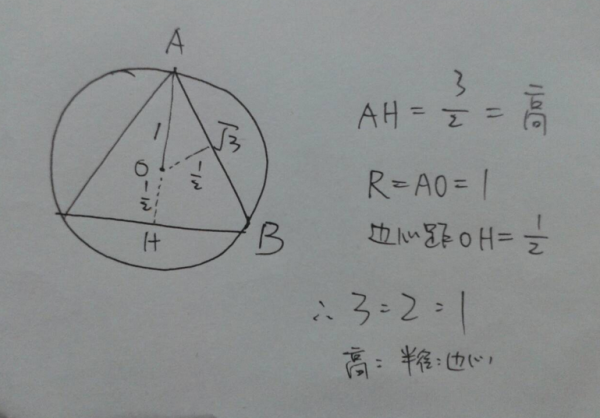 A
1
√3
O
1/2
1/2
H
B
AH = 3/2 = 高
R = AO = 1
边心距OH = 1/2
∴ 3 = 2 = 1
高 = 半径 : 边心